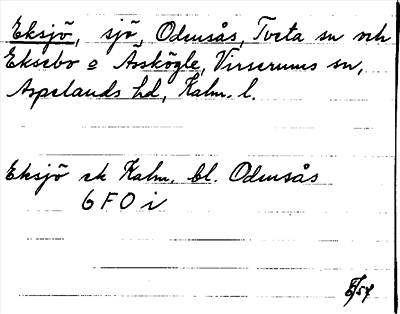 Eksjö, sjö, Odensås, Tveta sn och
Eksebo o Åsskögle, Virserums sn,
Aspelands hd, Kalm. l.
Eksjö ek Kalm. bl. Odensås
6 F O i